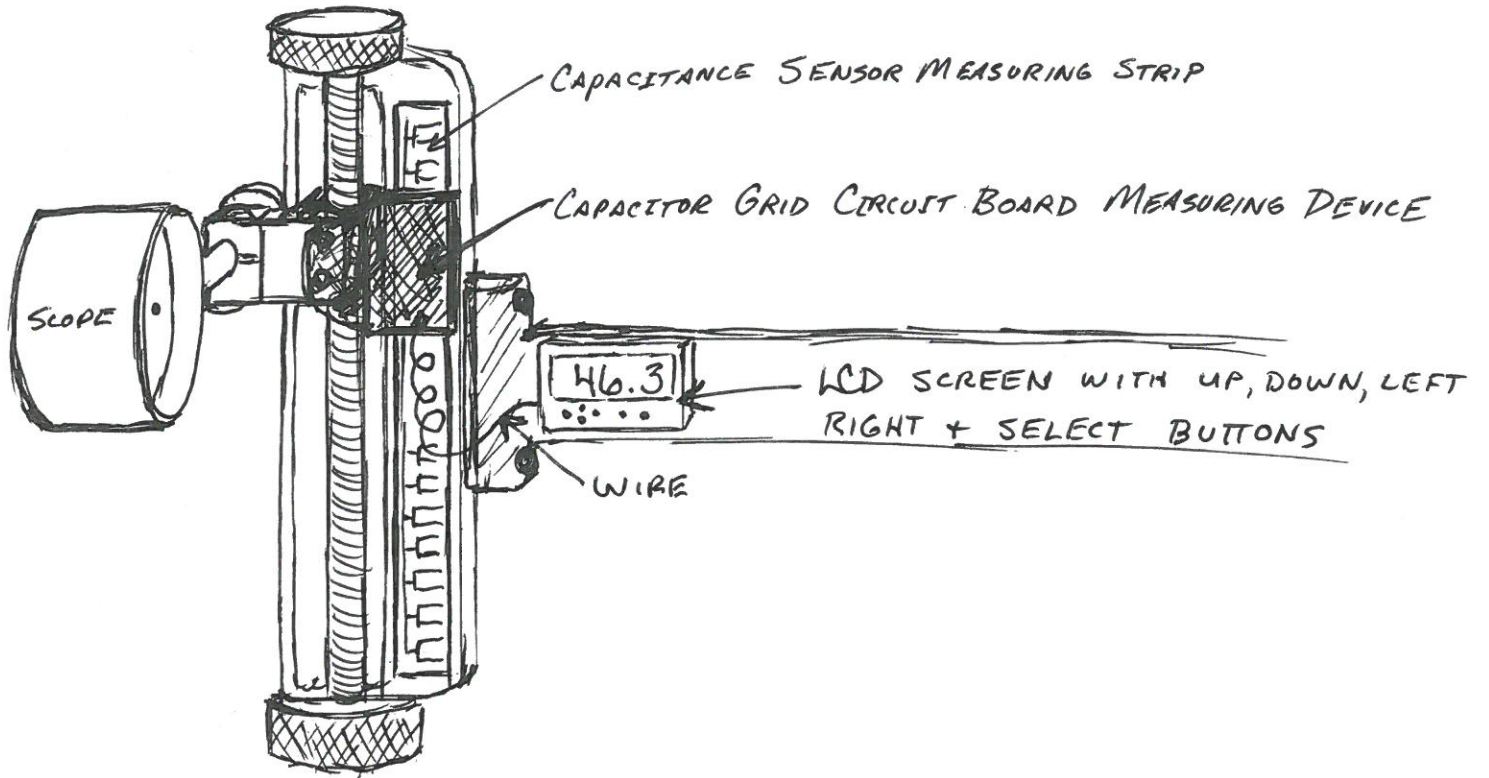 CAPACITANCE SENSOR MEASURING STRIP
CAPACITOR GRID CIRCUIT BOARD MEASURING DEVICE
SCOPE
46.3
LCD SCREEN WITH UP, DOWN, LEFT
RIGHT + SELECT BUTTONS
WIRE